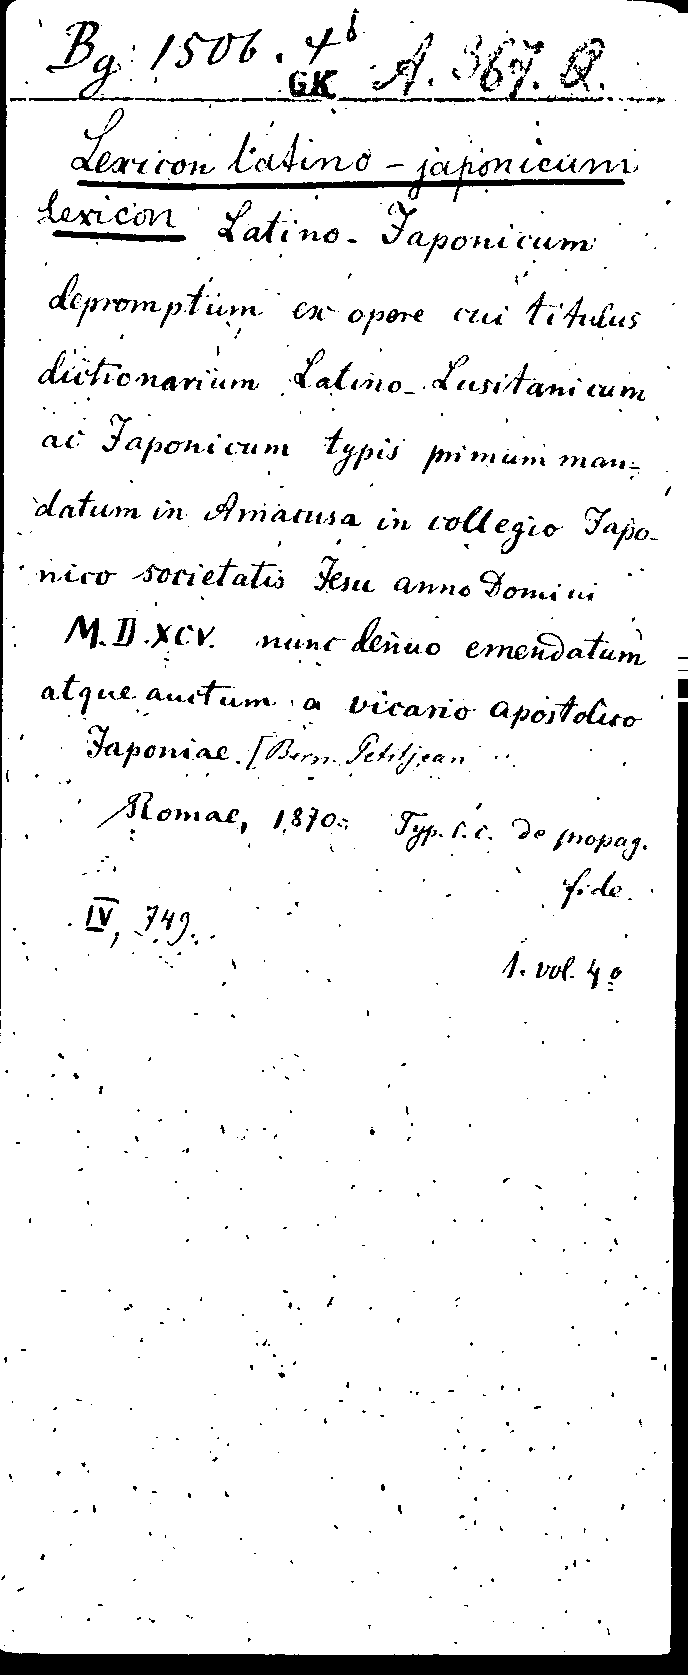 Bg 1506. 4b A. 367. Q.
GK
Lexicon latino - japonicum
Lexicon Latino - Japonicum
depromptum ex opere cui titulus
dictionarium Latino - Lusitanicum
ac Japonicum typis primum man=
datum in Amacusa in collegio Japo-
nico societatis Jesu anno Domini
M.D.XCV. nunc denuo emendatum
atque auctum a vicario apostolico
Japoniae. [Bern. Petitjean
Romae, 1870. Typ. s. c. de propag.
fide.
IV, 749.
1. vol. 4o